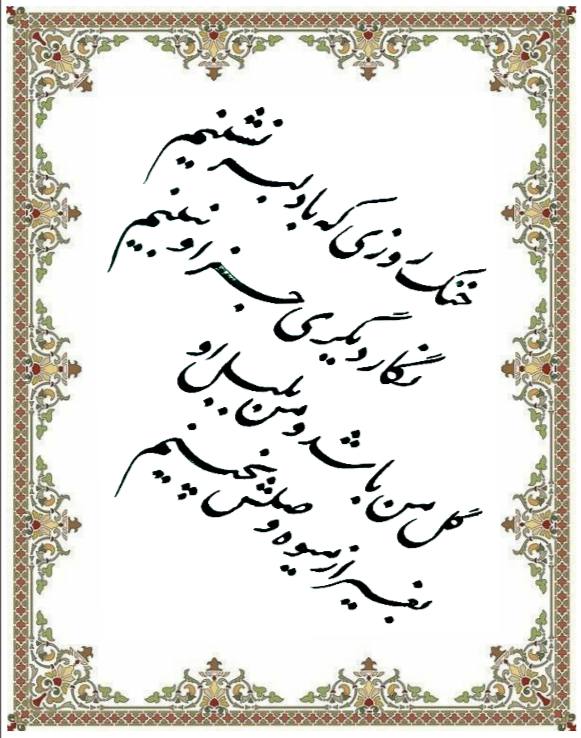 خنک روزی که با دلبر نشینم
نگار دیگری جز او نبینم
گل من باشد و من بلبل او
بغیر از میوه وصلش نچینم